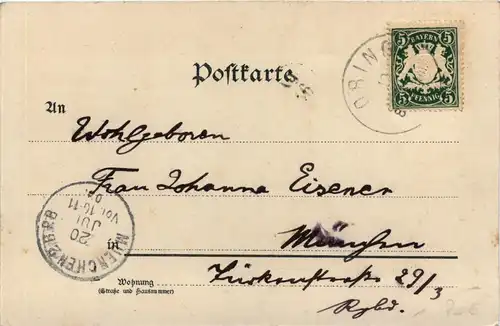 Postkarte
BAYERN
5 5
5 PFENNIG 5
An
Wohlgeboren
Frau Johanna Eisener
in München
Türkenstraße 29/3
Rgbd.
Wohnung
(Straße und Hausnummer)
MUENCHEN 2 B.P.B
20
JUL
Vor. 10-11